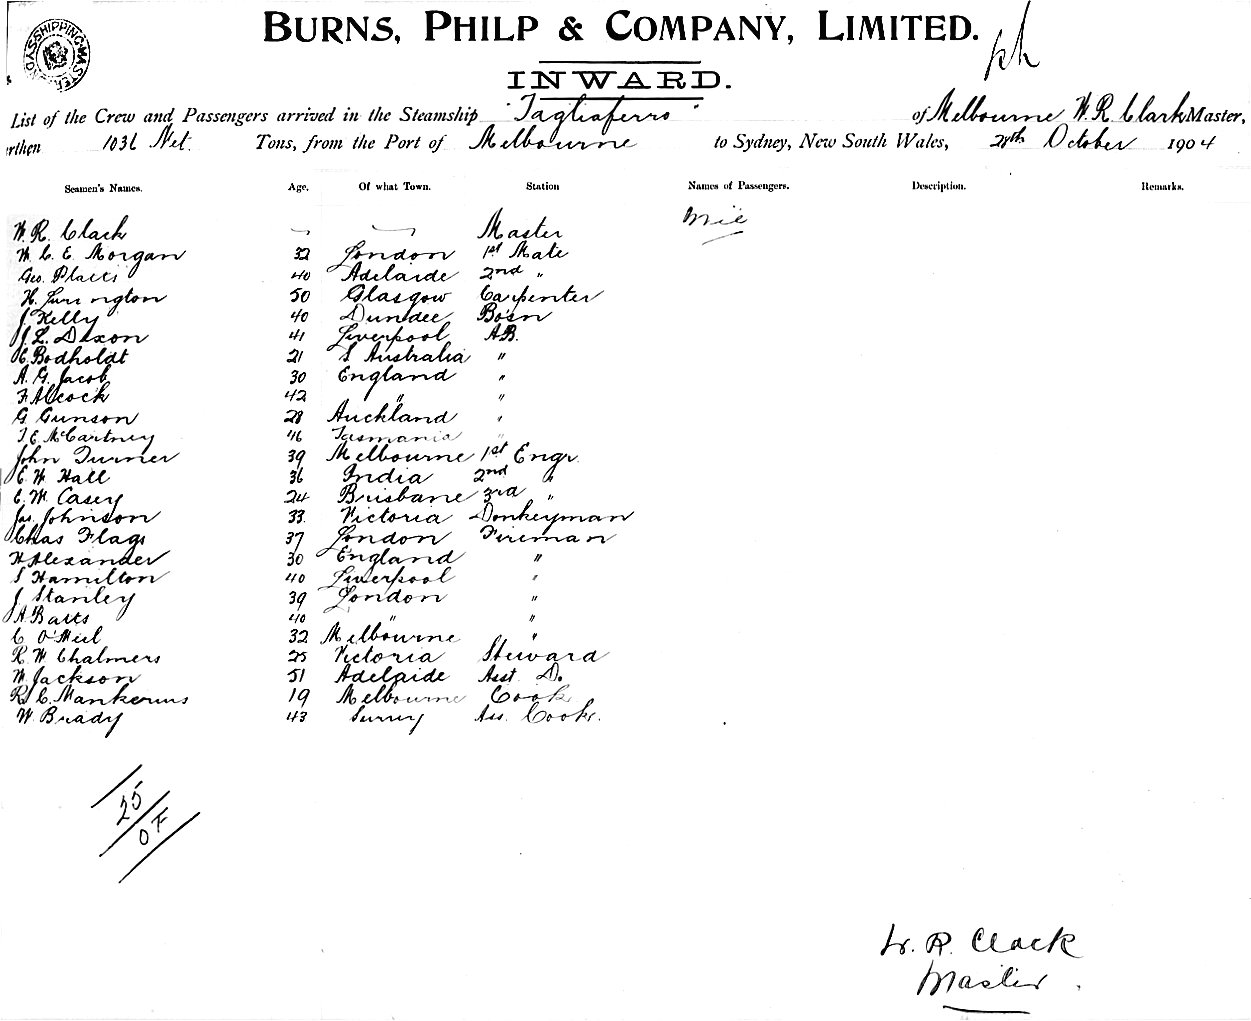 SHIPPING MASTERS
BURNS, PHILP & COMPANY, LIMITED.
INWARD.
List of the Crew and Passengers arrived in the Steamship "Tagliaferro" of Melbourne W. R. Clark Master,
rthen 1036 Net. Tons, from the Port of Melbourne to Sydney, New South Wales, 28th October 1904
Seamen's Names. Age. Of what Town. Station Names of Passengers. Description. Remarks.
W. R. Clark Master
W. C. E. Morgan 32 London 1st Mate
Geo. 40 Adelaide 2nd "
H. 50 Glasgow Carpenter
J Kelly 40 Dundee Bosn
J. L. Dixon 41 Liverpool AB.
C Bodholdt 21 S Australia "
A. G. Jacob 30 England "
F Alcock 42 " "
G Gunson 28 Auckland "
T E McCartney 46 Tasmania "
John Turner 39 Melbourne 1st Engr.
E W Hall 36 India 2nd "
E. M. Casey 24 Brisbane 3rd "
Jas. Johnson 33 Victoria Donkeyman
Chas Flags 37 London Fireman
H Alexander 30 England "
S Hamilton 40 Liverpool "
J Stanley 39 London "
A Batts 40 " "
C O'Neil 32 Melbourne "
R W Chalmers 25 Victoria Steward
W Jackson 51 Adelaide Asst. Do.
R. C. 19 Melbourne Cook
W. Brady 43 Surrey Ass. Cook.
25
OF
W. R. Clack
Master